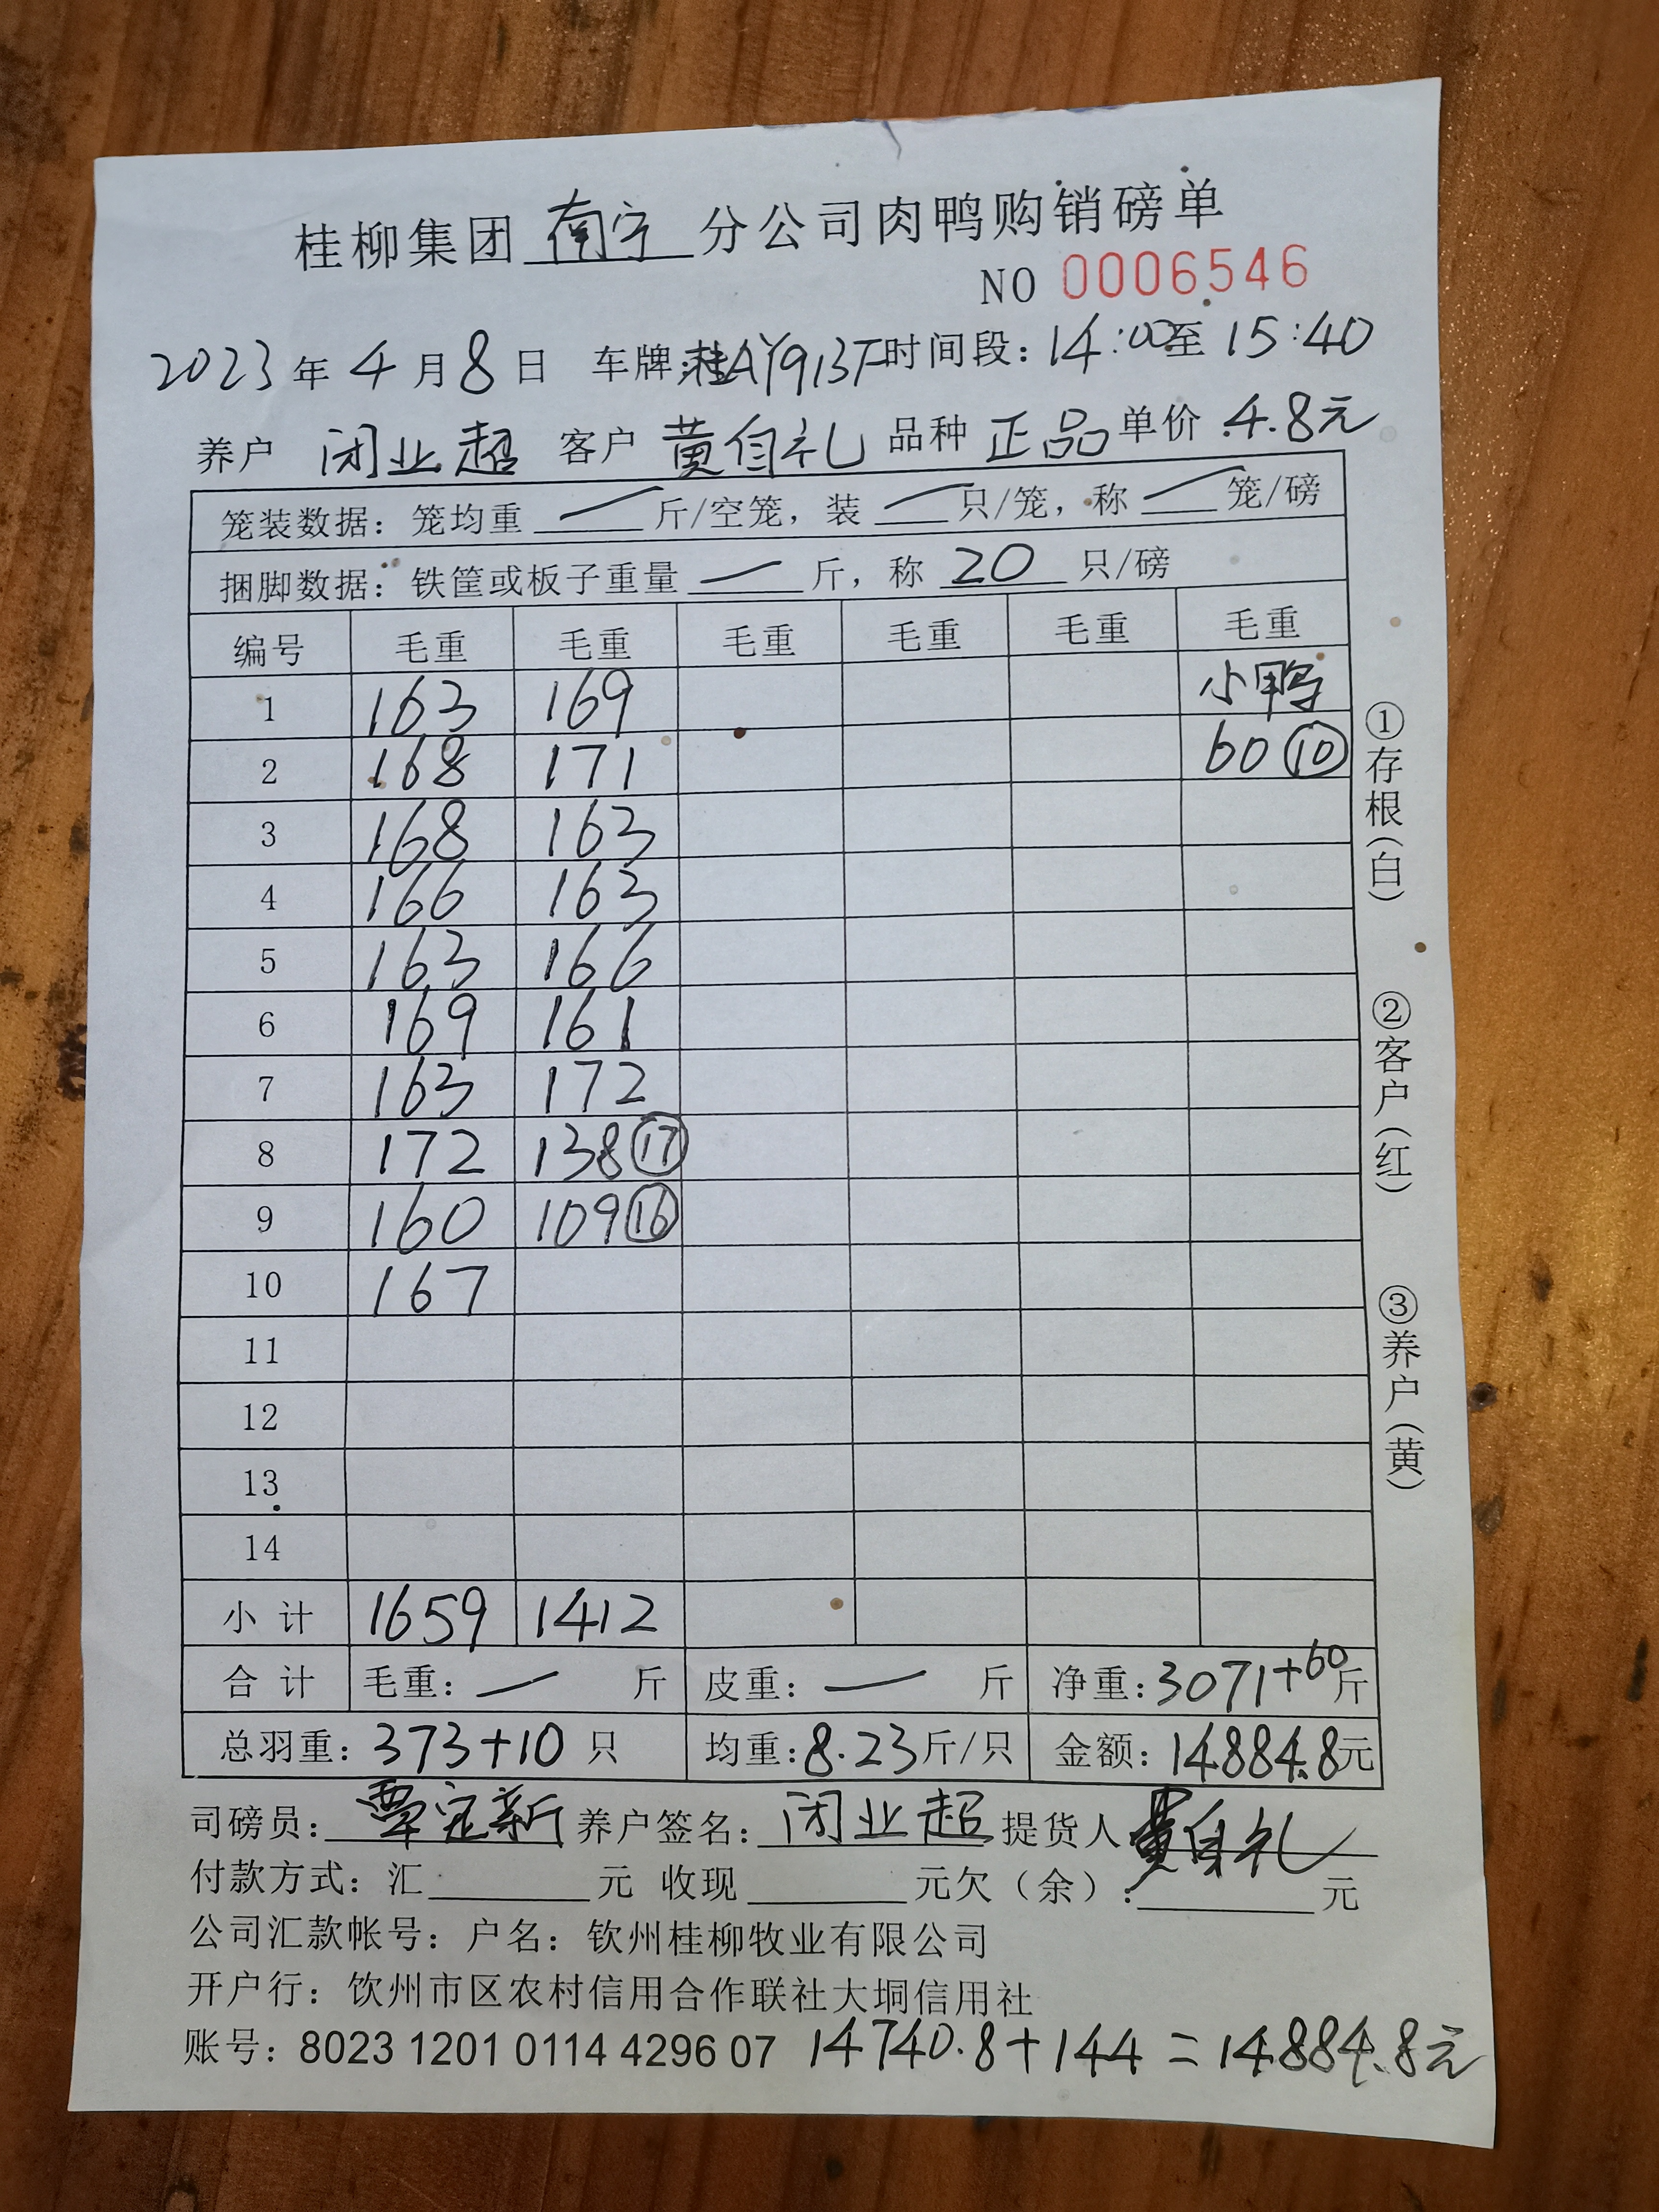 桂柳集团 南宁 分公司肉鸭购销磅单
NO 0006546
2023 年 4 月 8 日 车牌:桂AY913F 时间段: 14:00 至 15:40
养户 闭业超 客户 黄自礼 品种 正品 单价 4.8元
笼装数据: 笼均重 — 斤/空笼, 装 — 只/笼, 称 — 笼/磅
捆脚数据: 铁筐或板子重量 — 斤, 称 20 只/磅
编号 毛重 毛重 毛重 毛重 毛重 毛重
1 163 169 小鸭
2 168 171 60 ⑩
3 168 163
4 166 163
5 163 166
6 169 161
7 163 172
8 172 138 ⑰
9 160 109 ⑯
10 167
11
12
13
14
小 计 1659 1412
合 计 毛重: — 斤 皮重: — 斤 净重: 3071+60 斤
总羽重: 373+10 只 均重: 8.23 斤/只 金额: 14884.8 元
司磅员: 覃定新 养户签名: 闭业超 提货人 黄自礼
付款方式: 汇 元 收现 元欠(余): 元
公司汇款帐号: 户名: 钦州桂柳牧业有限公司
开户行: 钦州市区农村信用合作联社大垌信用社
账号: 8023 1201 0114 4296 07 14740.8+144=14884.8元
①存根(白)
②客户(红)
③养户(黄)